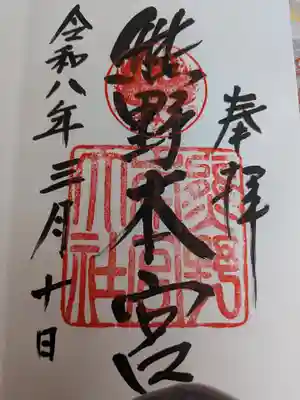 奉拝
熊野本宮
熊野本宮大社
令和八年三月十日